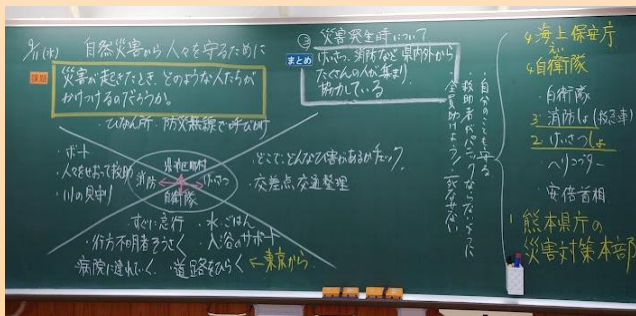 9/11(水) 自然災害から人々を守るために
課題
災害が起きたとき、どのような人たちが
かけつけるのだろうか。
・ひなん所・防災無線で呼びかけ
・ボート
・人々をせおって救助
・川の見守り
県 市区町村
消防
けいさつ
自衛隊
・どこで、どんなひ害があるかチェック。
・交差点、交通整理
すぐに急行
・行方不明者そうさく
・病院に連れていく
・水、ごはん
・入浴のサポート
・道路をひらく
←東京から
③ 災害発生時について
まとめ
けいさつ、消防など県内外から
たくさんの人が集まり
協力している
・自分のことも守る
・救助者がパニックにならないように
・全員助けよう!死なせない
4 海上保安庁
えい
4 自衛隊
・自衛隊
3 消防しょ(救急車)
2 けいさつしょ
ヘリコプター
・安倍首相
1 熊本県庁の
災害対策本部